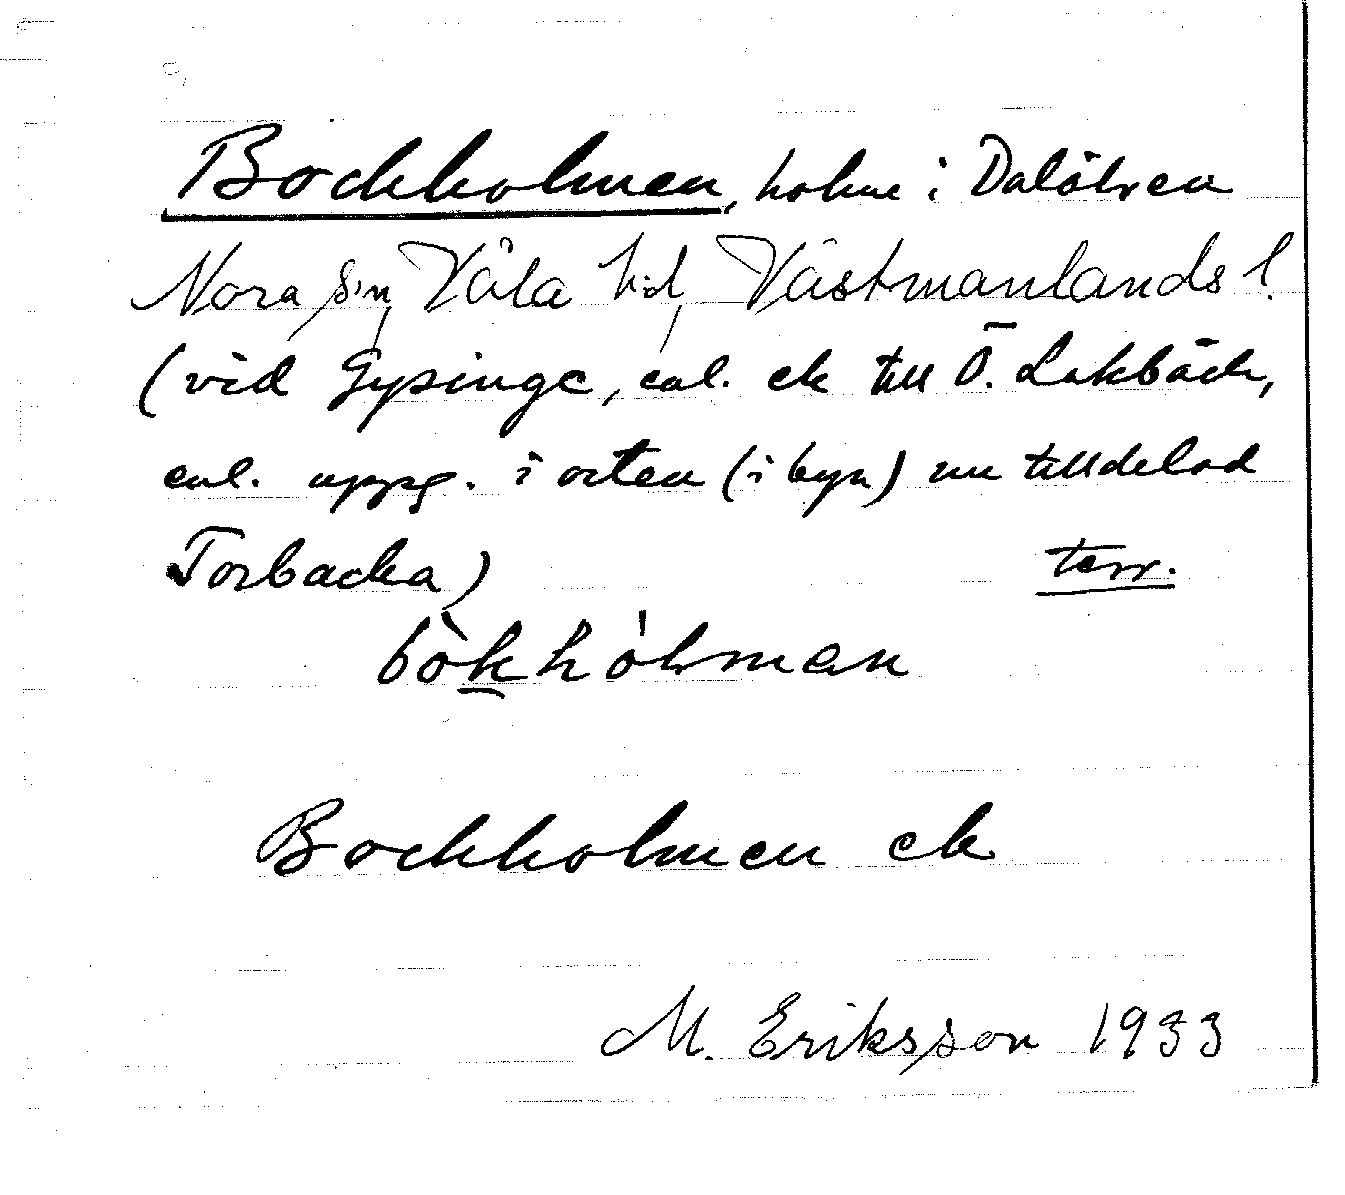 Bockholmen, holme i Dalälven
Nora s:n, Våla hd, Västmanlands l.
(vid Gysinge, enl. ek till Ö. Lakbäck,
enl. uppg. i orten (i byn) nu tilldelad
Torbacka) terr.
bòkhólman
Bockholmen ek
M. Eriksson 1933